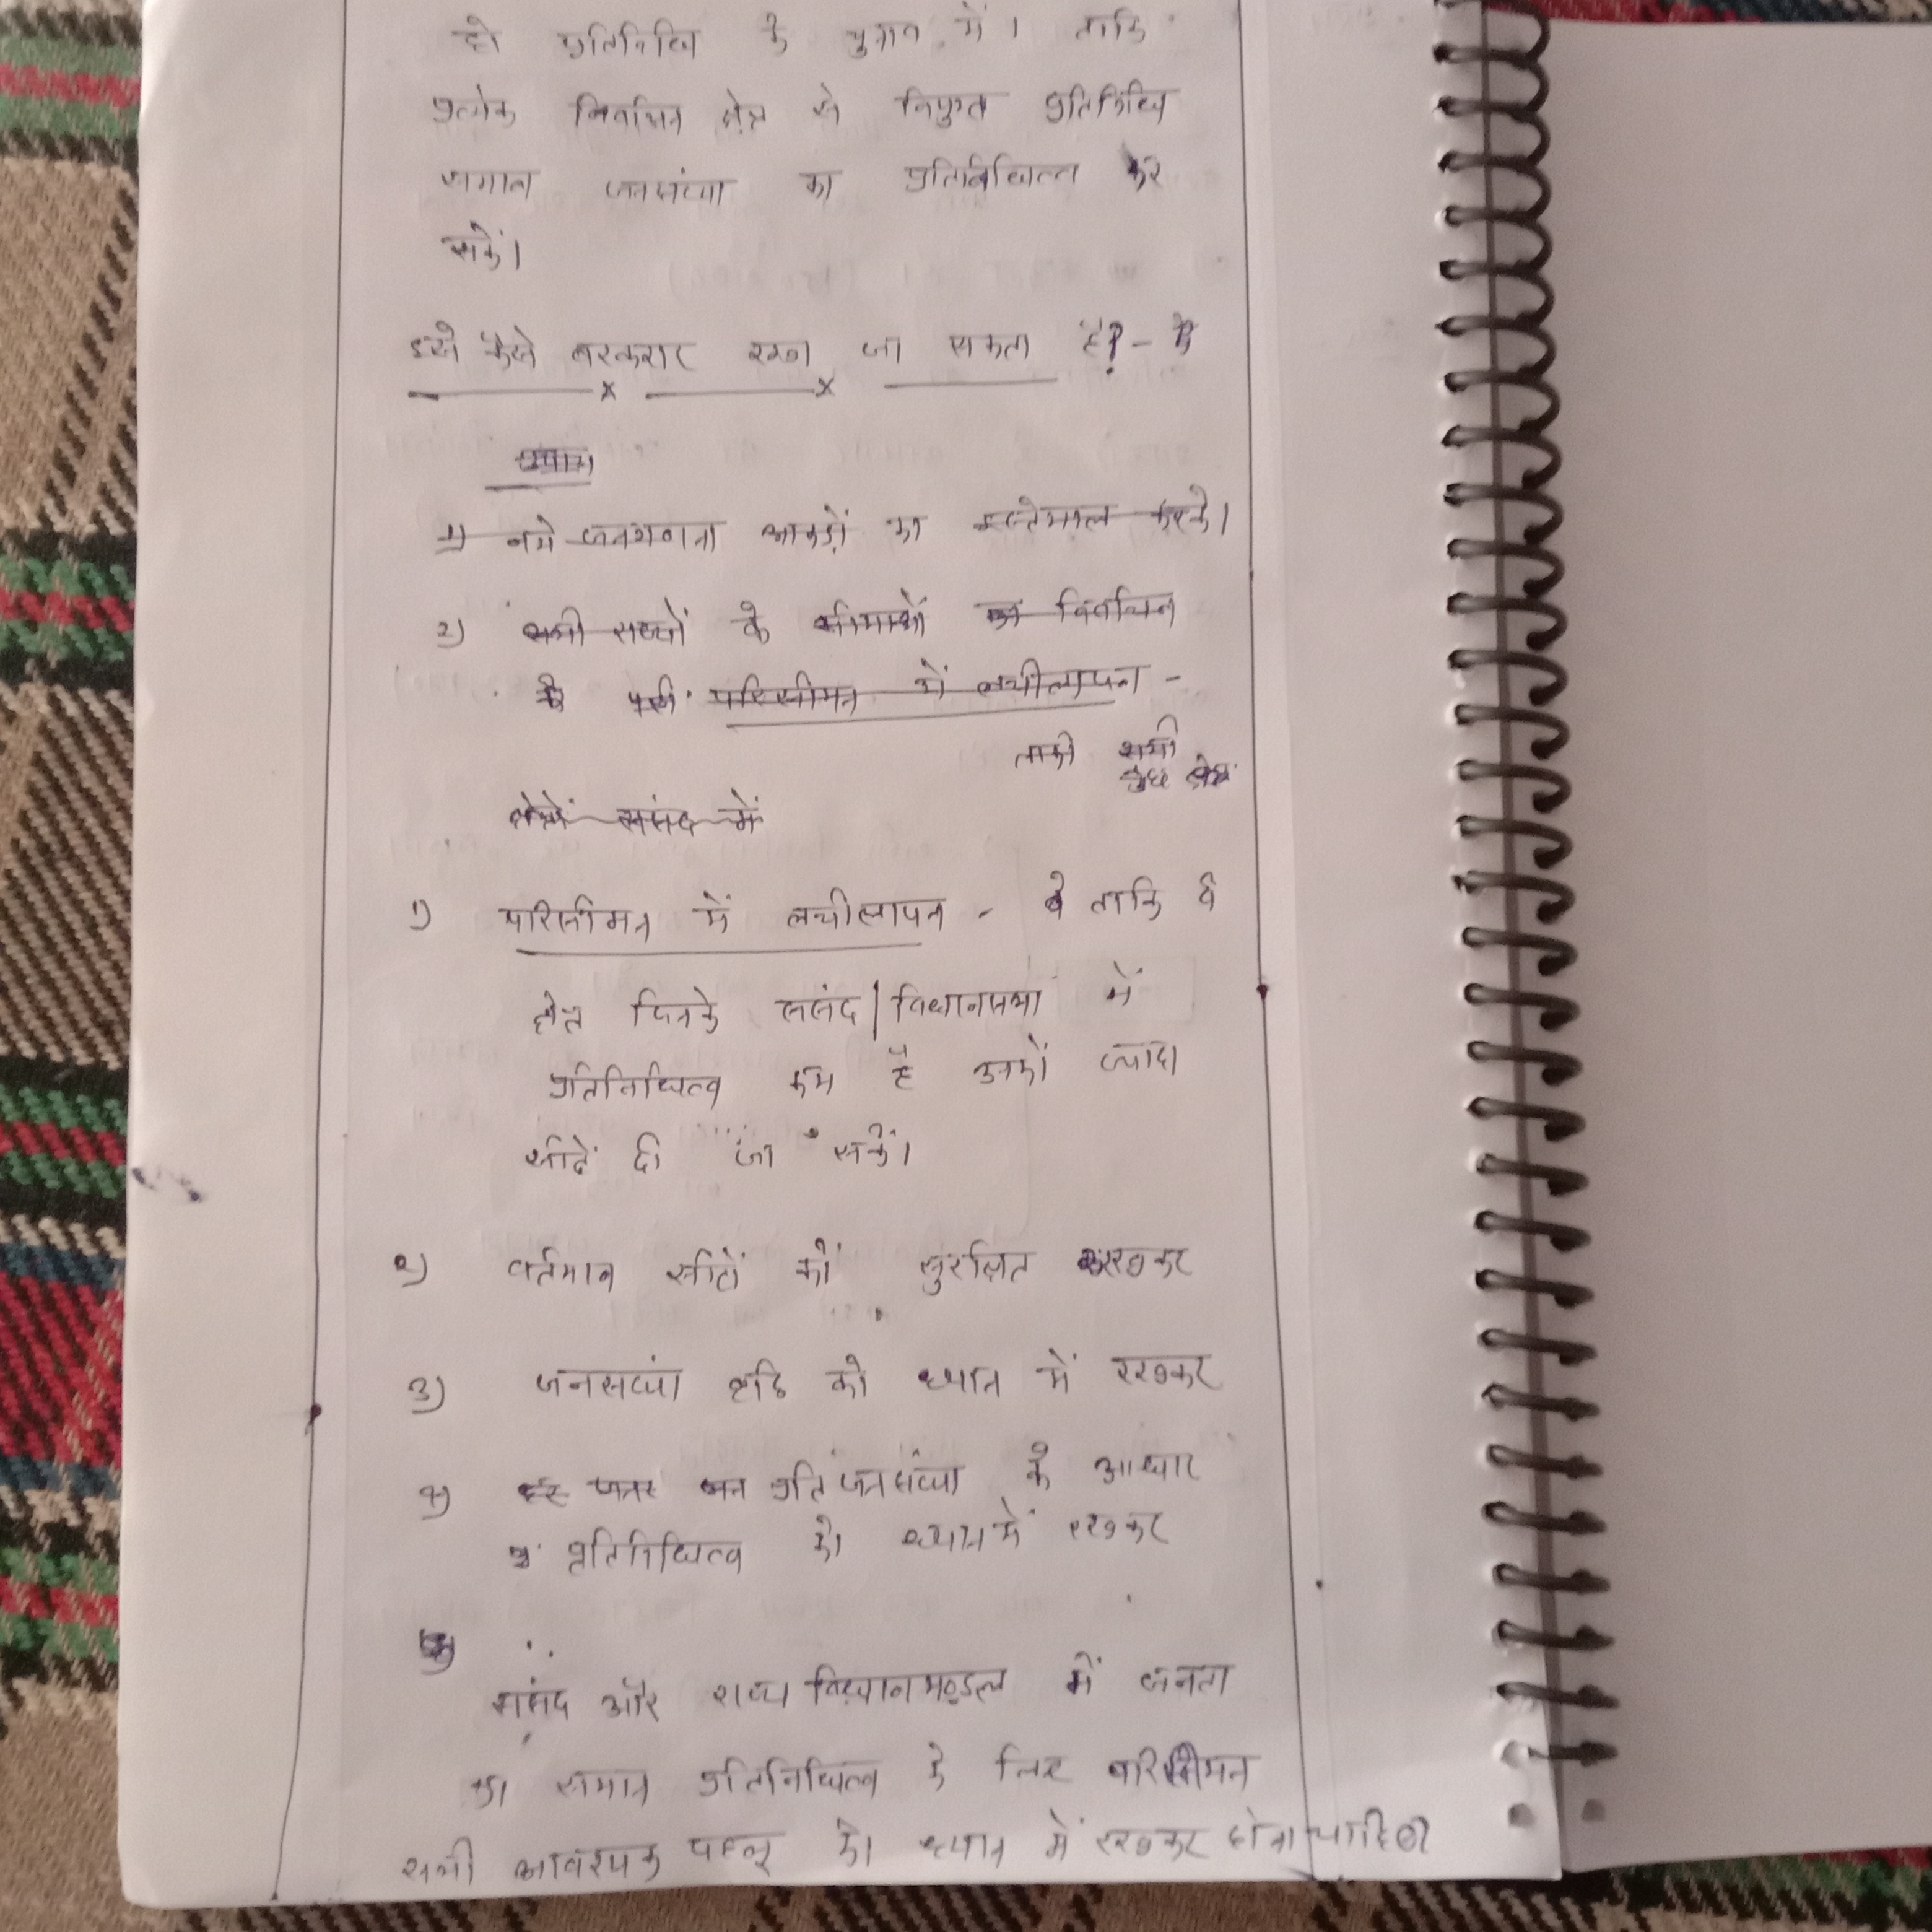 हो प्रतिनिधि के चुनाव में। ताकि
प्रत्येक निर्वाचन क्षेत्र से नियुक्त प्रतिनिधि
समान जनसंख्या का प्रतिनिधित्व कर
सकें।
इसे कैसे बरकरार रखा जा सकता है? -
1) नये जनगणना आकड़ों का इस्तेमाल करके।
2) सभी राज्यों के सीमाओं का निर्वाचन
परिसीमन में लचीलापन -
ताकी सभी
कुछ
संसंद में
1) परिसीमन में लचीलापन - ताकि
क्षेत्र जिनके संसंद | विधानसभा में
प्रतिनिधित्व कम है उनको ज्यादा
सीटें दी जा सकें।
2) वर्तमान सीटों कों सुरक्षित रखकर
3) जनसख्यां वृद्धि को ध्यान में रखकर
4) प्रति जनसंख्या के आधार
प्रतिनिधित्व को ध्यान में रखकर
संसंद और राज्य विधानमण्डल में जनता
का समान प्रतिनिधित्व के लिए परिसीमन
सभी आवश्यक पहलू को ध्यान में रखकर होना चाहिए